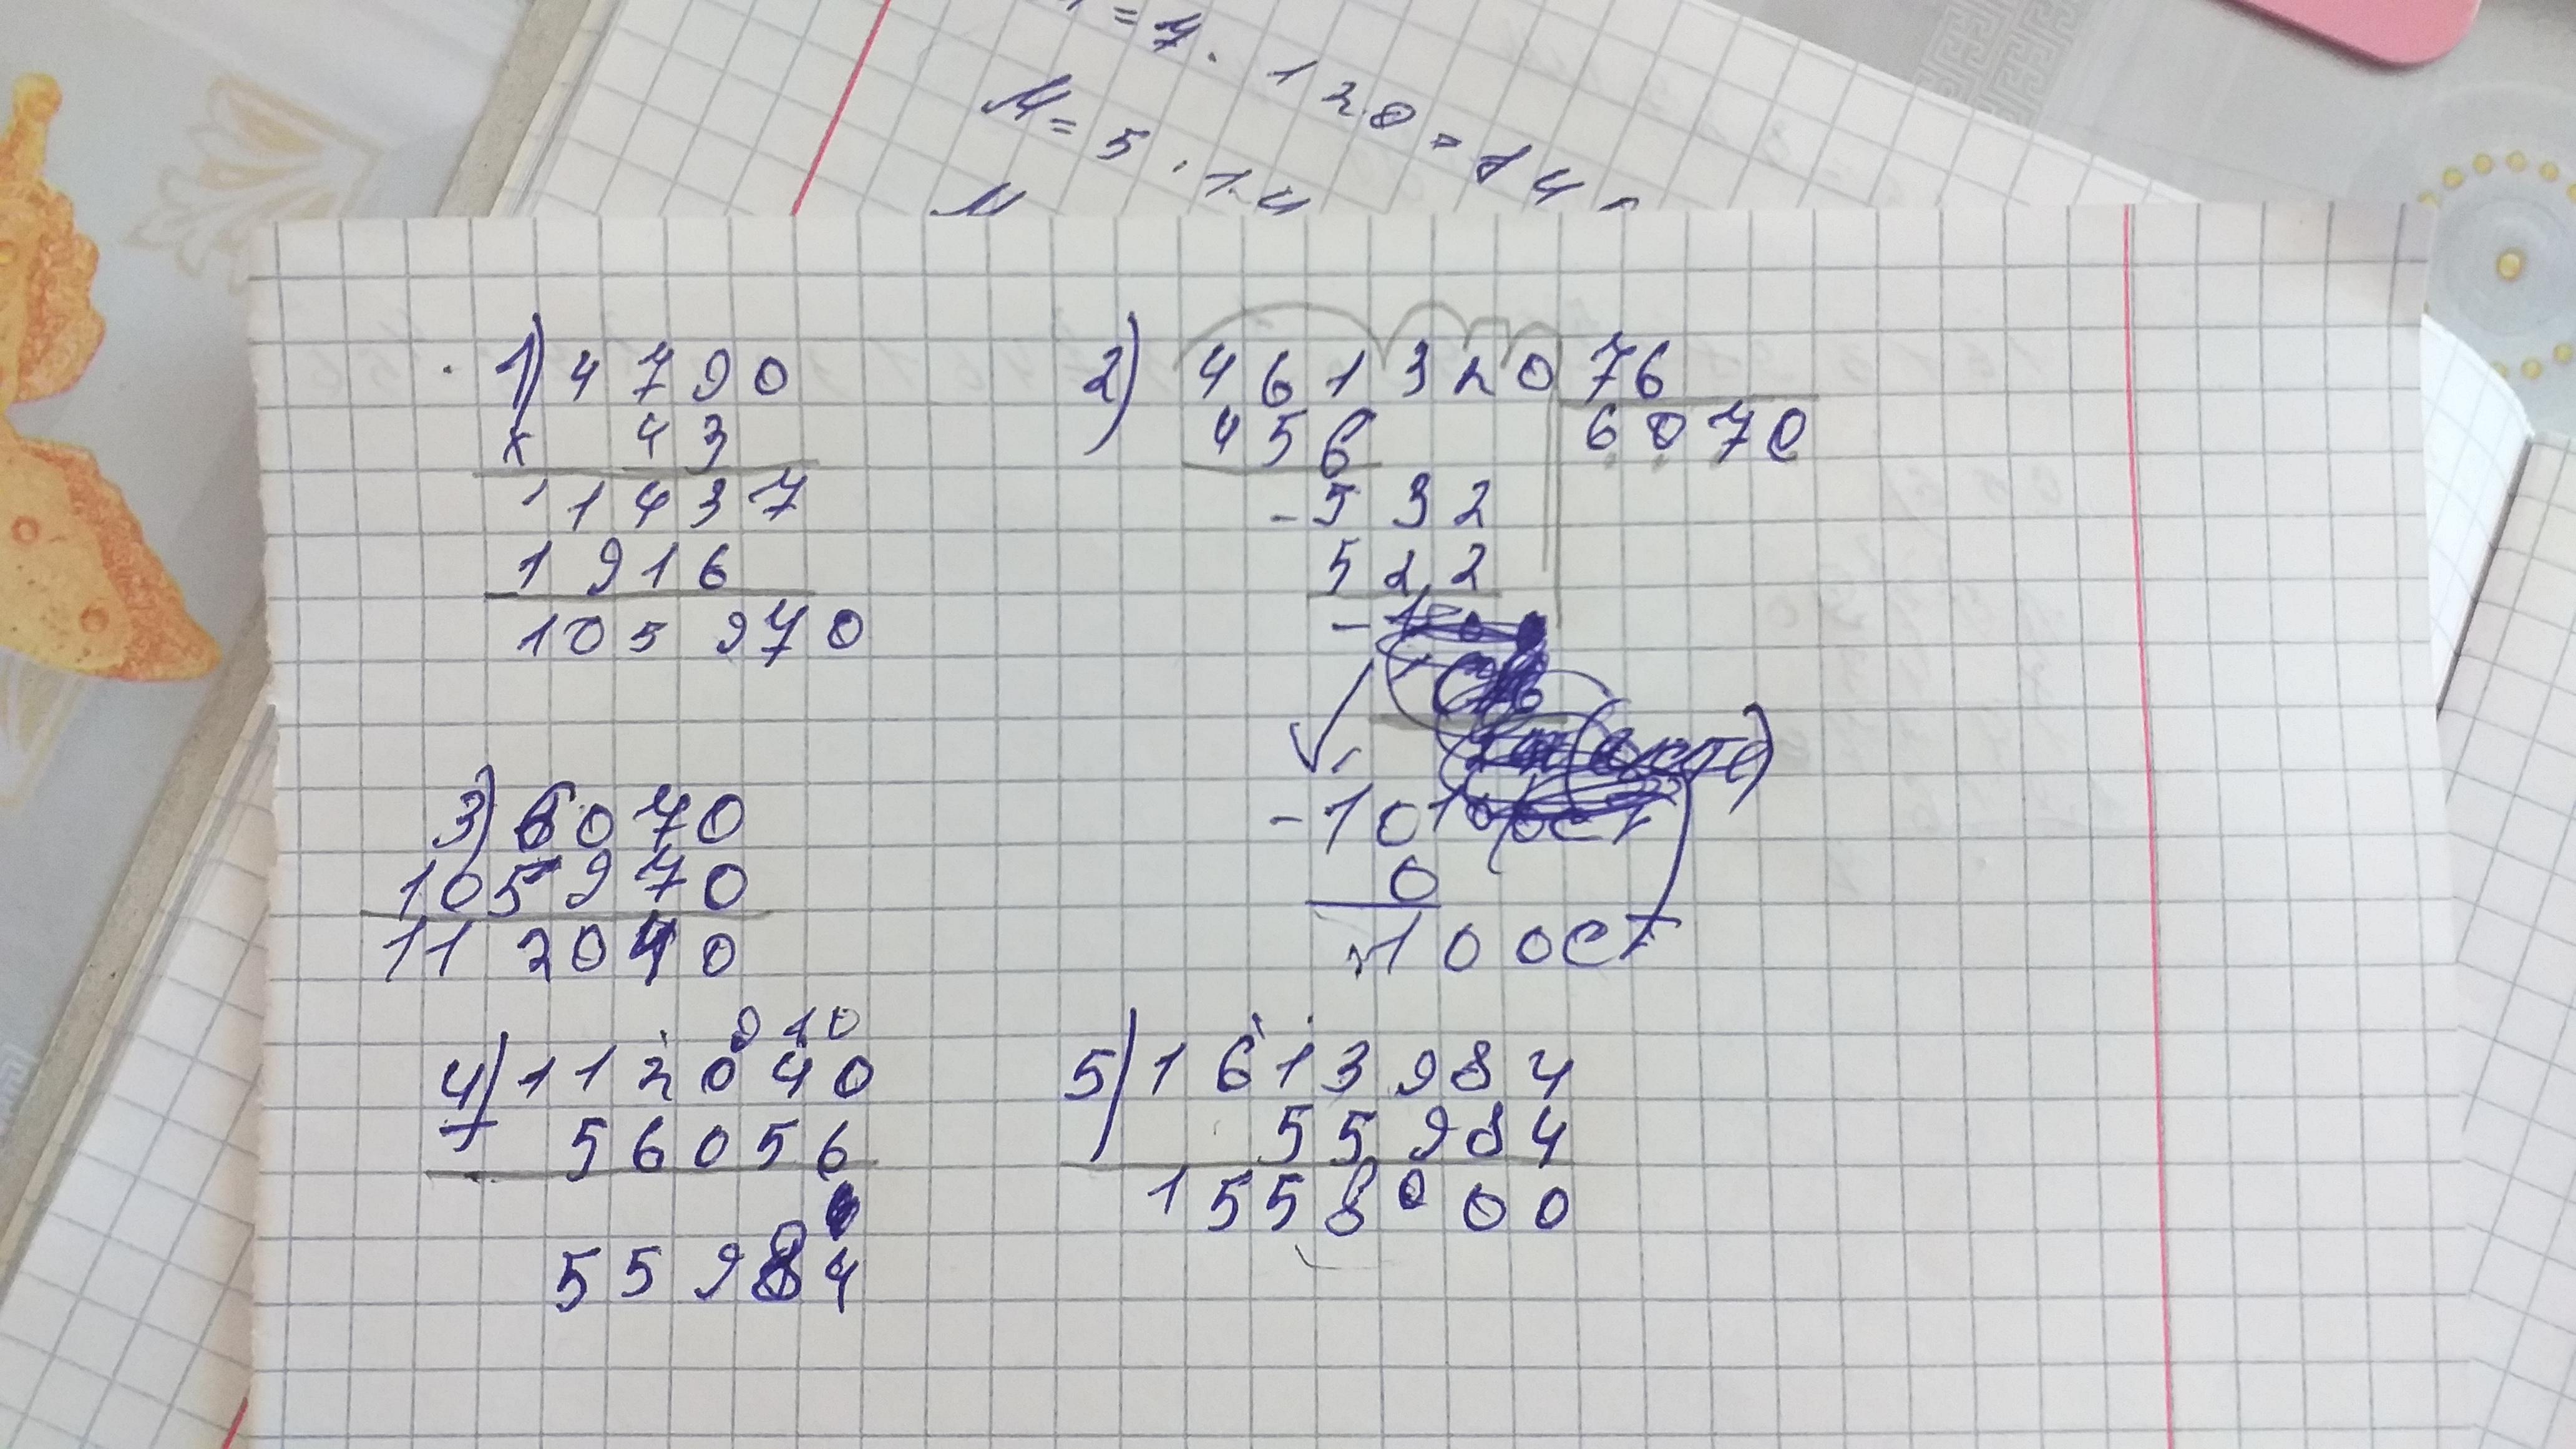 = 7 · 120 = 84
M = 5 · 14
M
1) 4790
x 43
11437
1916
105 970
2) 461320 76
456 6070
- 532
522
- 10
0
10 ост
3) 6070
105970
112040
9 10
4) 112040
- 56056
55984
5) 1613984
55984
1558000